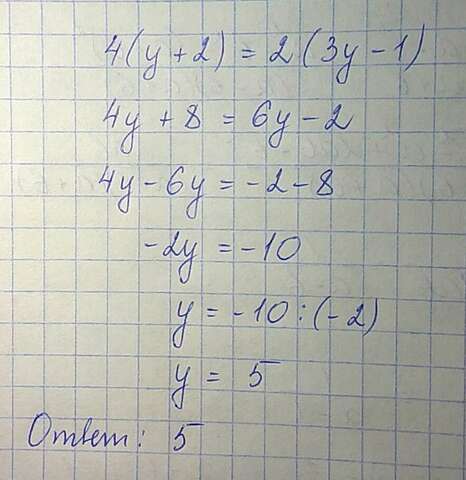 4(y + 2) = 2(3y - 1)
4y + 8 = 6y - 2
4y - 6y = -2 - 8
-2y = -10
y = -10 : (-2)
y = 5
Ответ: 5